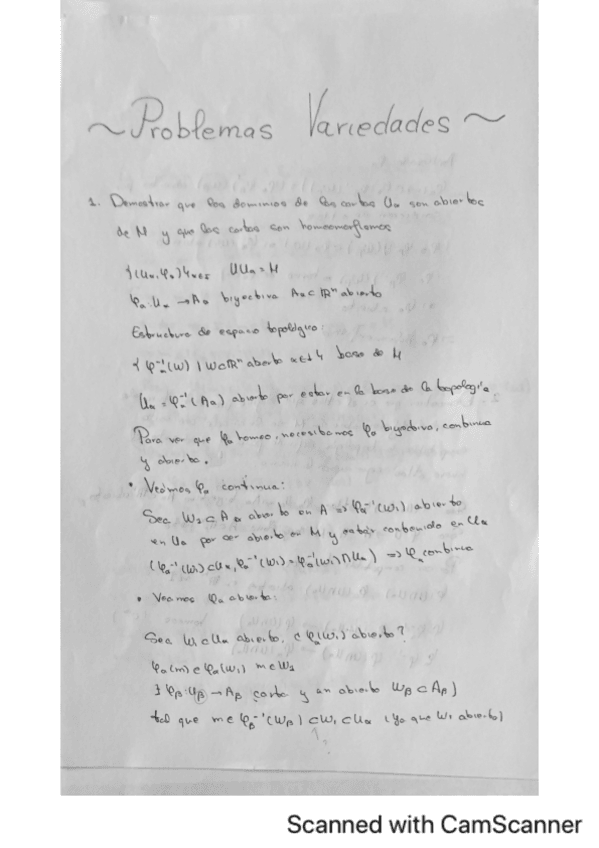 ~Problemas Variedades~
1. Demostrar que los dominios de las cartas Uα son abiertos
de M y que las cartas son homeomorfismos
{(Uα, φα)}α∈I ∪Uα = M
φα: Uα → Aα biyectiva Aα⊂ℝⁿ abierto
Estructura de espacio topológico:
{ φα⁻¹(W) | W⊂ℝⁿ abierto α∈I } base de M
Uα = φα⁻¹(Aα) abierto por estar en la base de la topología
Para ver que φα homeo, necesitamos φα biyectiva, continua
y abierta.
• Veamos φα continua:
Sea W₁⊂Aα abierto en A ⇒ φα⁻¹(W₁) abierto
en Uα por ser abierto en M y estar contenido en Uα
(φα⁻¹(W₁)⊂Uα, φα⁻¹(W₁)=φα⁻¹(W₁)∩Uα) ⇒ φα continua
• Veamos φα abierta:
Sea W₁⊂Uα abierto, ¿φα(W₁) abierto?
φα(m)∈φα(W₁) m∈W₁
∃ φβ: Uβ → Aβ carta y un abierto Wβ⊂Aβ)
tal que m∈φβ⁻¹(Wβ)⊂W₁⊂Uα (ya que W₁ abierto)
1.
Scanned with CamScanner